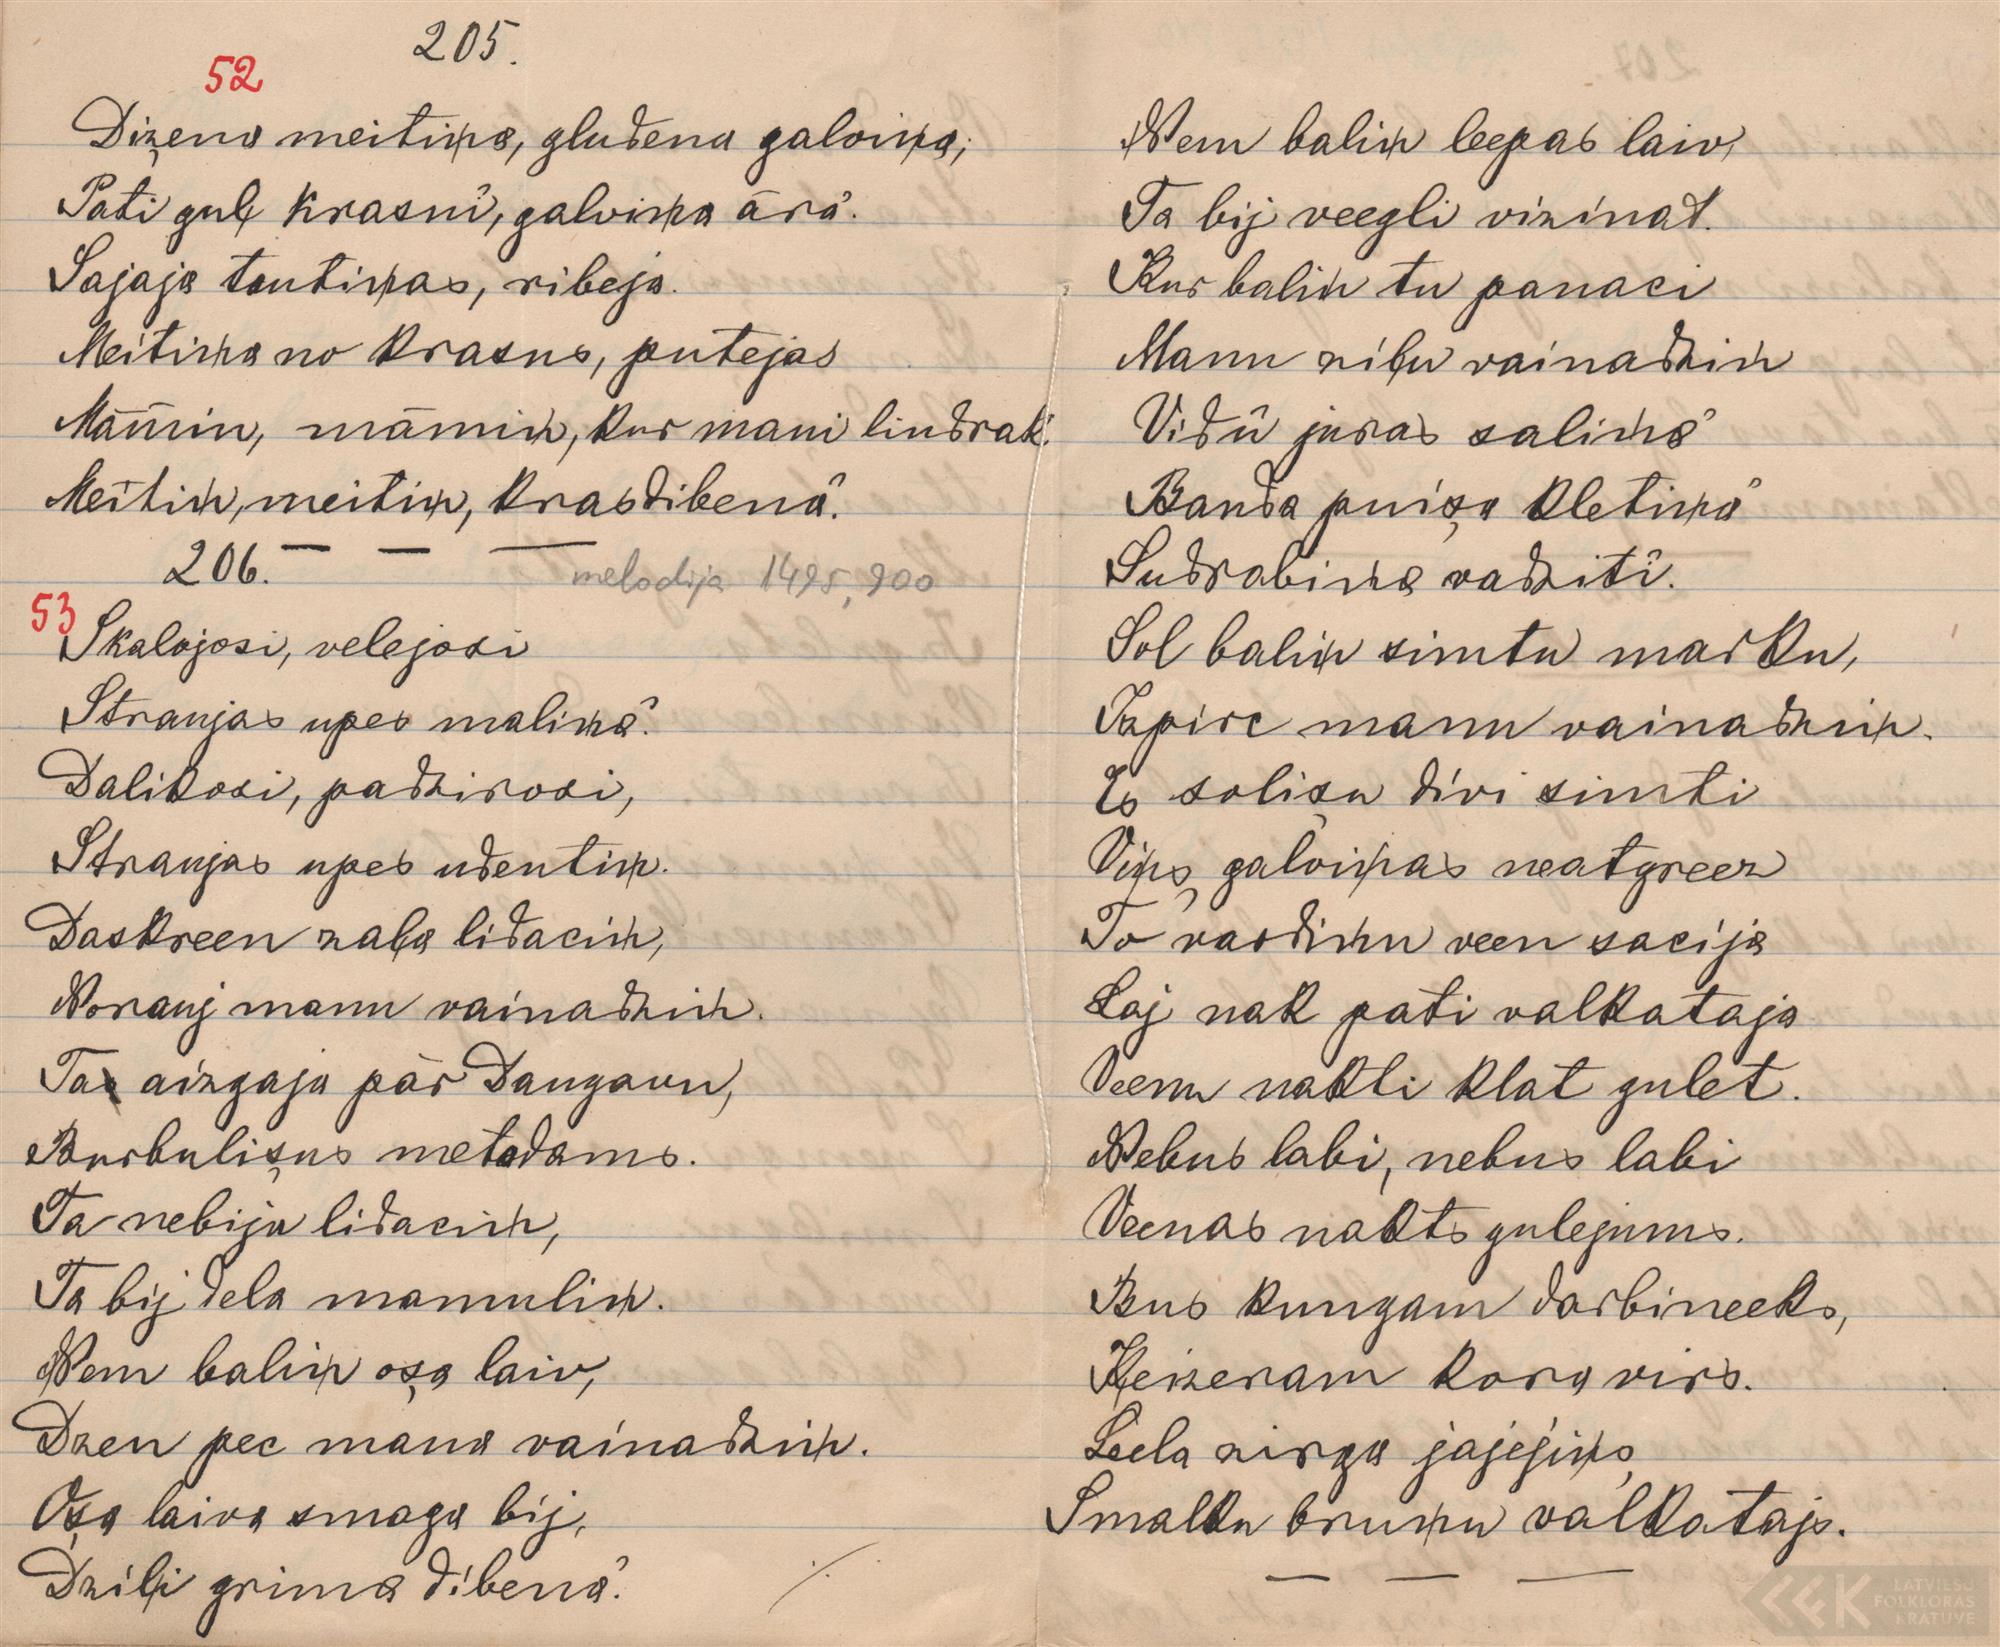 205.
52
Diženа meitiņa, gludena galviņa;
Pati guļ krasnî, galviņa ārâ.
Sajaja tautiņas, ribeja.
Meitiņa no krasns, putejas
Māmiņ, māmiņ, kur mani lindrak.
Meitiņ, meitiņ, krasdibenâ.
206.
melodija 1495,900
53
Skalojosi, velejosi
Straujas upes maliņâ.
Dalikosi, padzirosi,
Straujas upes udentiņ.
Daskreen zaļa lidaciņ,
Norauj manu vainadziņ.
Ta aizgaja pār Daugavu,
Burbulišus metadams.
Ta nebija lidaciņ,
Ta bij dela mamuliņ.
Ņem baliņ oša laiv,
Dzen pec mana vainadziņ.
Oša laiva smaga bij,
Dziļi grima dibenâ.
Ņem baliņ leepas laiv,
Ta bij veegli vizinat.
Kur baliņ tu panaci
Manu ziļu vainadziņ
Vidû juras saliņâ
Banda puiša kletiņâ
Sudrabiņa vadzitî.
Sol baliņ simtu marku,
Izpirc manu vainadziņ.
Es solišu divi simti
Viņš galviņas neatgreez
To vardiņu veen sacija
Laj nak pati valkataja
Veenu nakti klat gulet.
Nebus labi, nebus labi
Veenas nakts gulejums.
Bus kungam darbineeks,
Ķeizeram kara virs.
Leela zirga jajejiņš
Smalku bruņu valkatajs.
LATVIEŠU
FOLKLORAS
KRĀTUVE